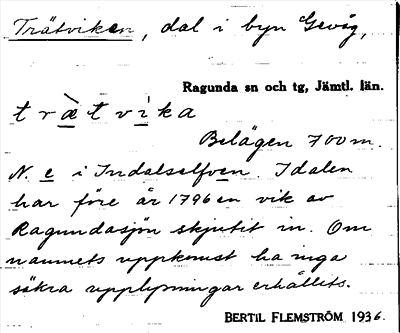 Trätviken, dal i byn Gevåg,
Ragunda sn och tg, Jämtl. län.
trätvika
Belägen 700 m.
N. e i Indalselfven. I dalen
har före år 1796 en vik av
Ragundasjön skjutit in. Om
namnets uppkomst ha inga
säkra upplysningar erhållits.
BERTIL FLEMSTRÖM 1936.